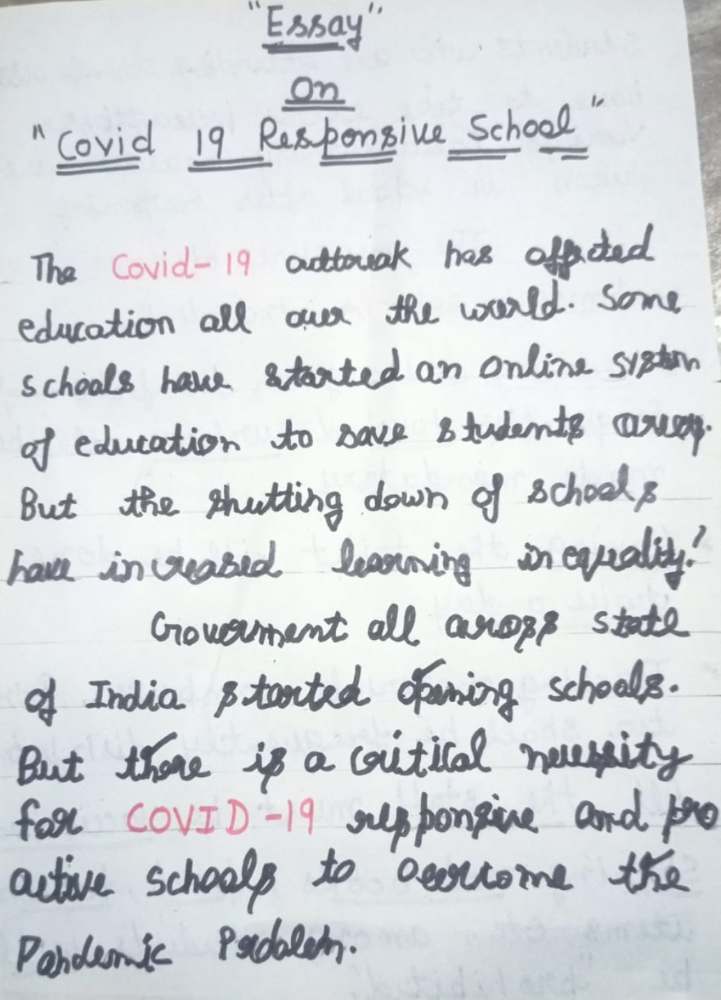 "Essay"
On
"Covid 19 Responsive School"
The Covid-19 outbreak has affected
education all over the world. Some
schools have started an online system
of education to save students area.
But the shutting down of schools
have increased learning inequality.'
Goverment all aross state
of India started opening schools.
But there is a critical necessity
for COVID-19 responsive and pro
active schools to overcome the
Pandemic Problem.